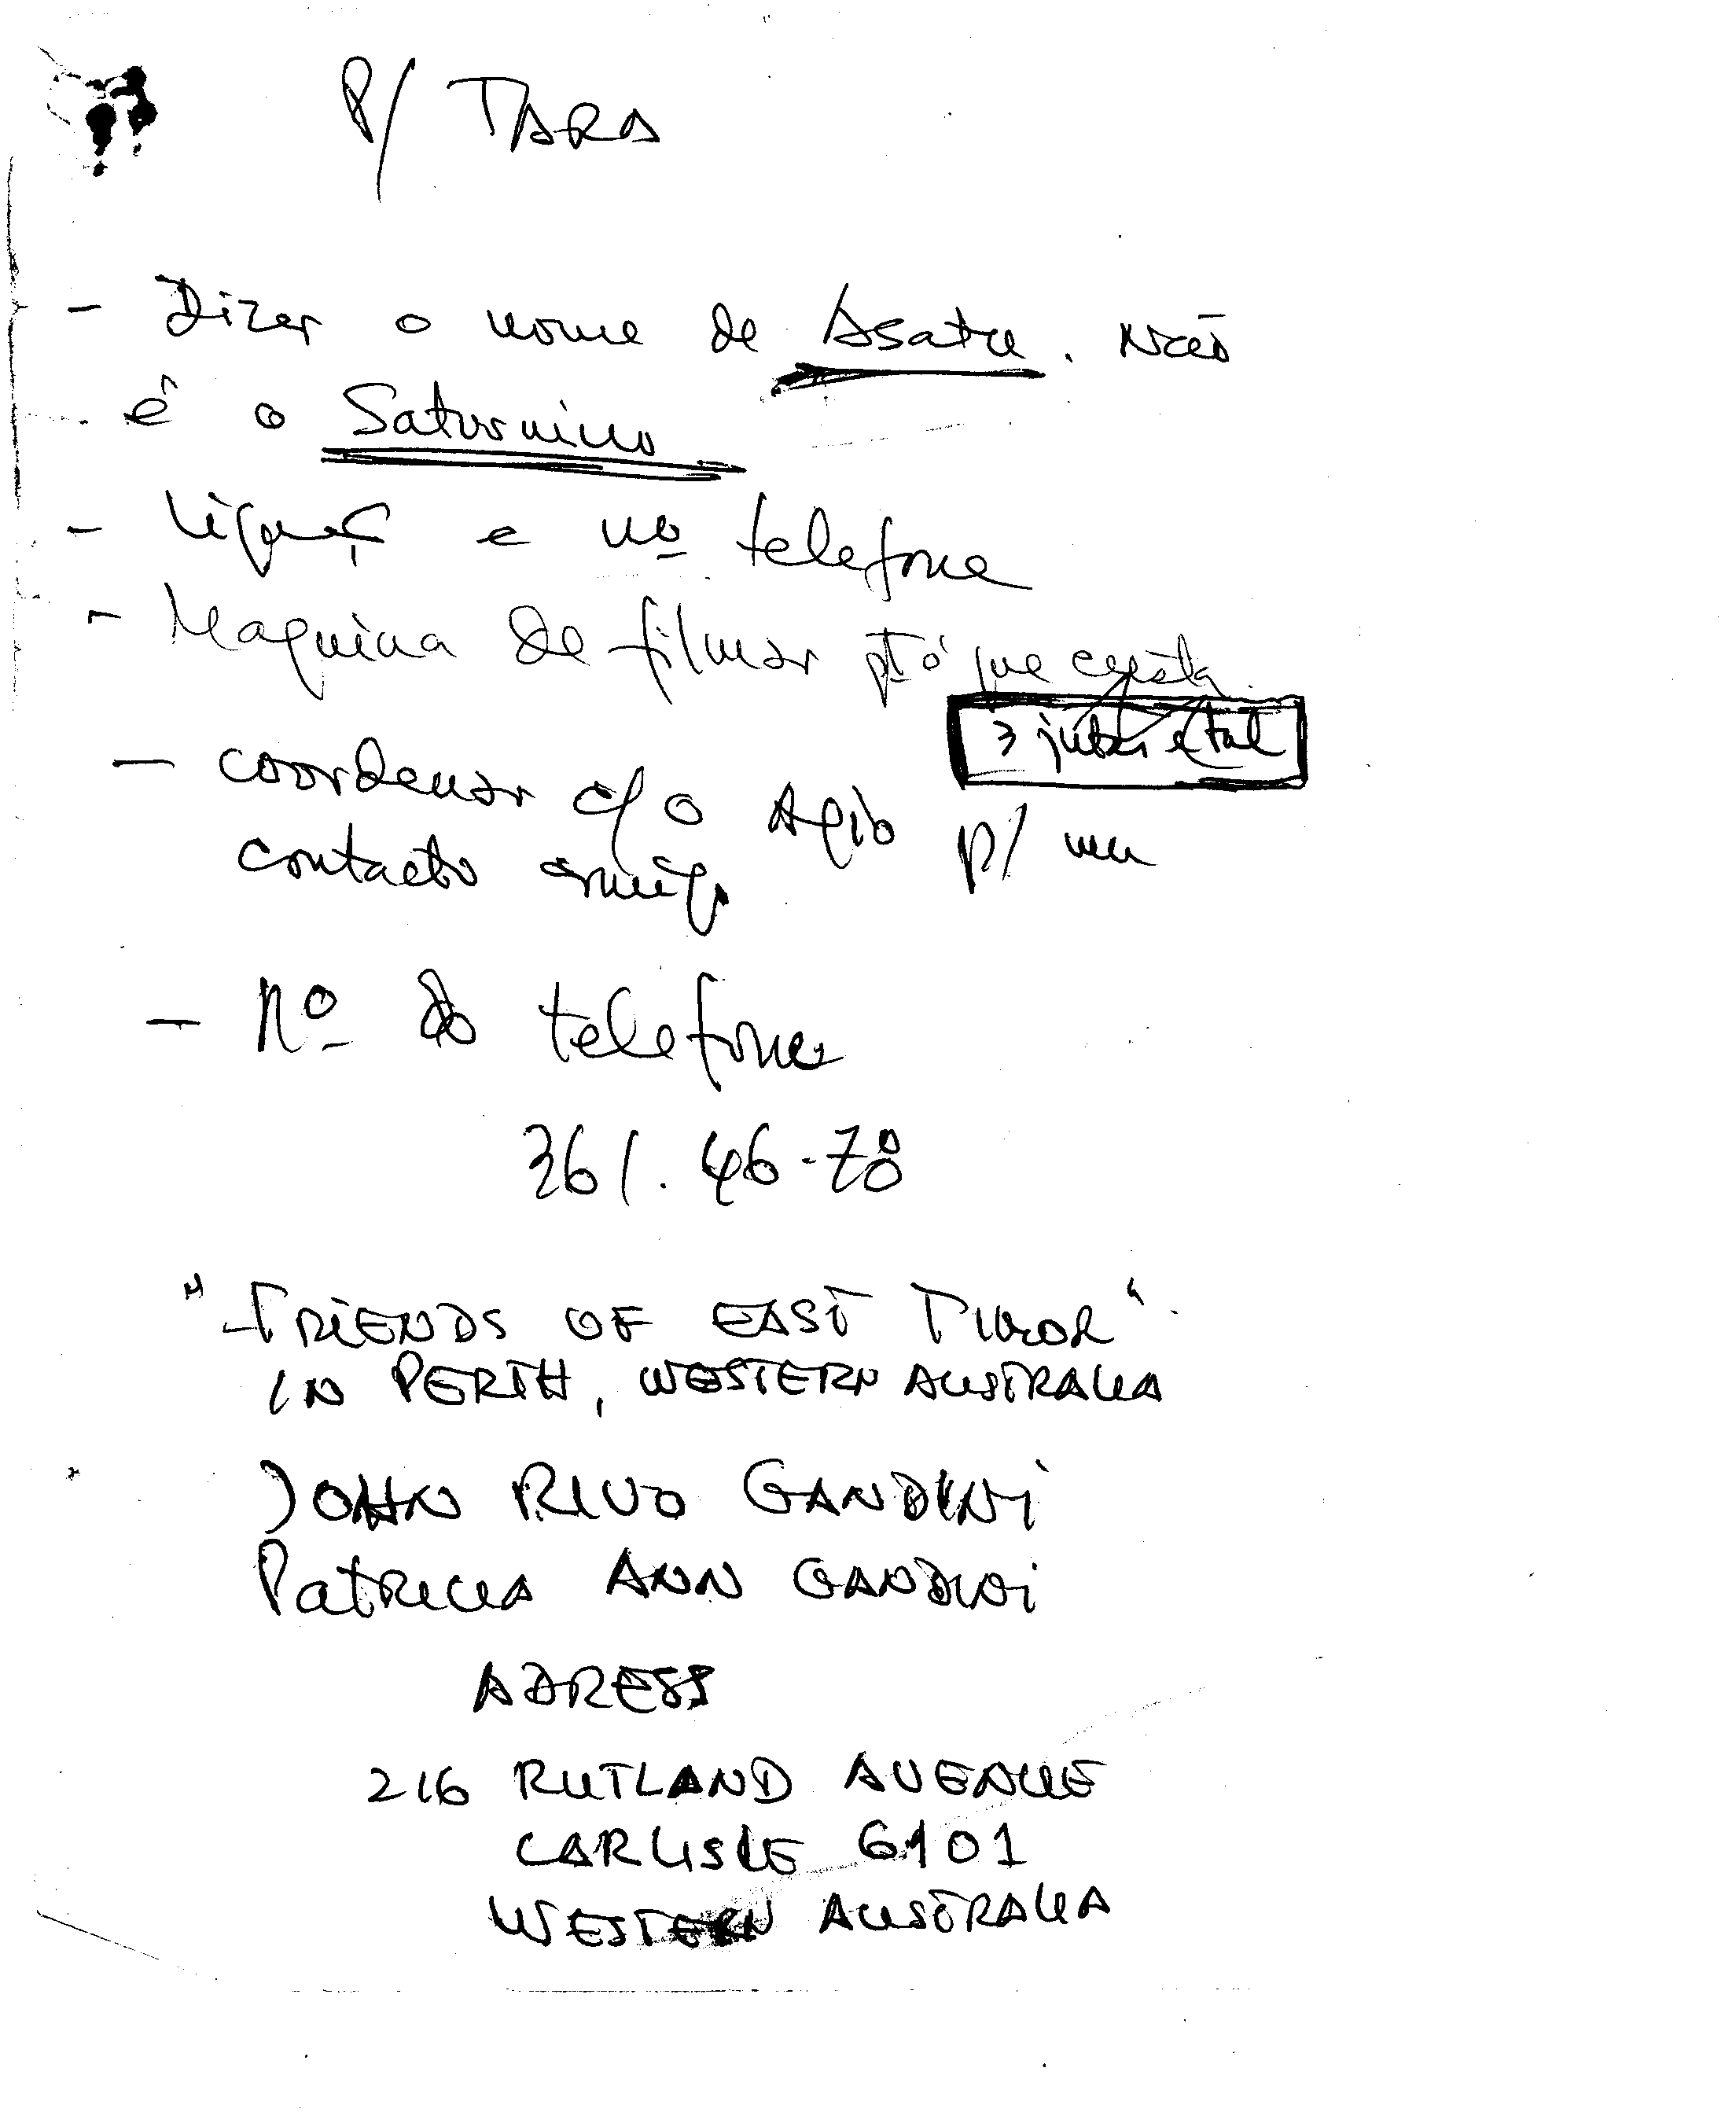 P/ TARA
- Dizer o nome de Asatre. Não
é o Saturnino
- e nº telefone
- Maquina de filmar que
- coordenar c/ o Agio p/ um
contacto
- Nº do telefone
361.46-78
"FRIENDS OF EAST TIMOR"
IN PERTH, WESTERN AUSTRALIA
JOHN RIVO GANDINI
PATRICIA ANN GANDINI
ADRESS
216 RUTLAND AVENUE
CARLISLE 6101
WESTERN AUSTRALIA